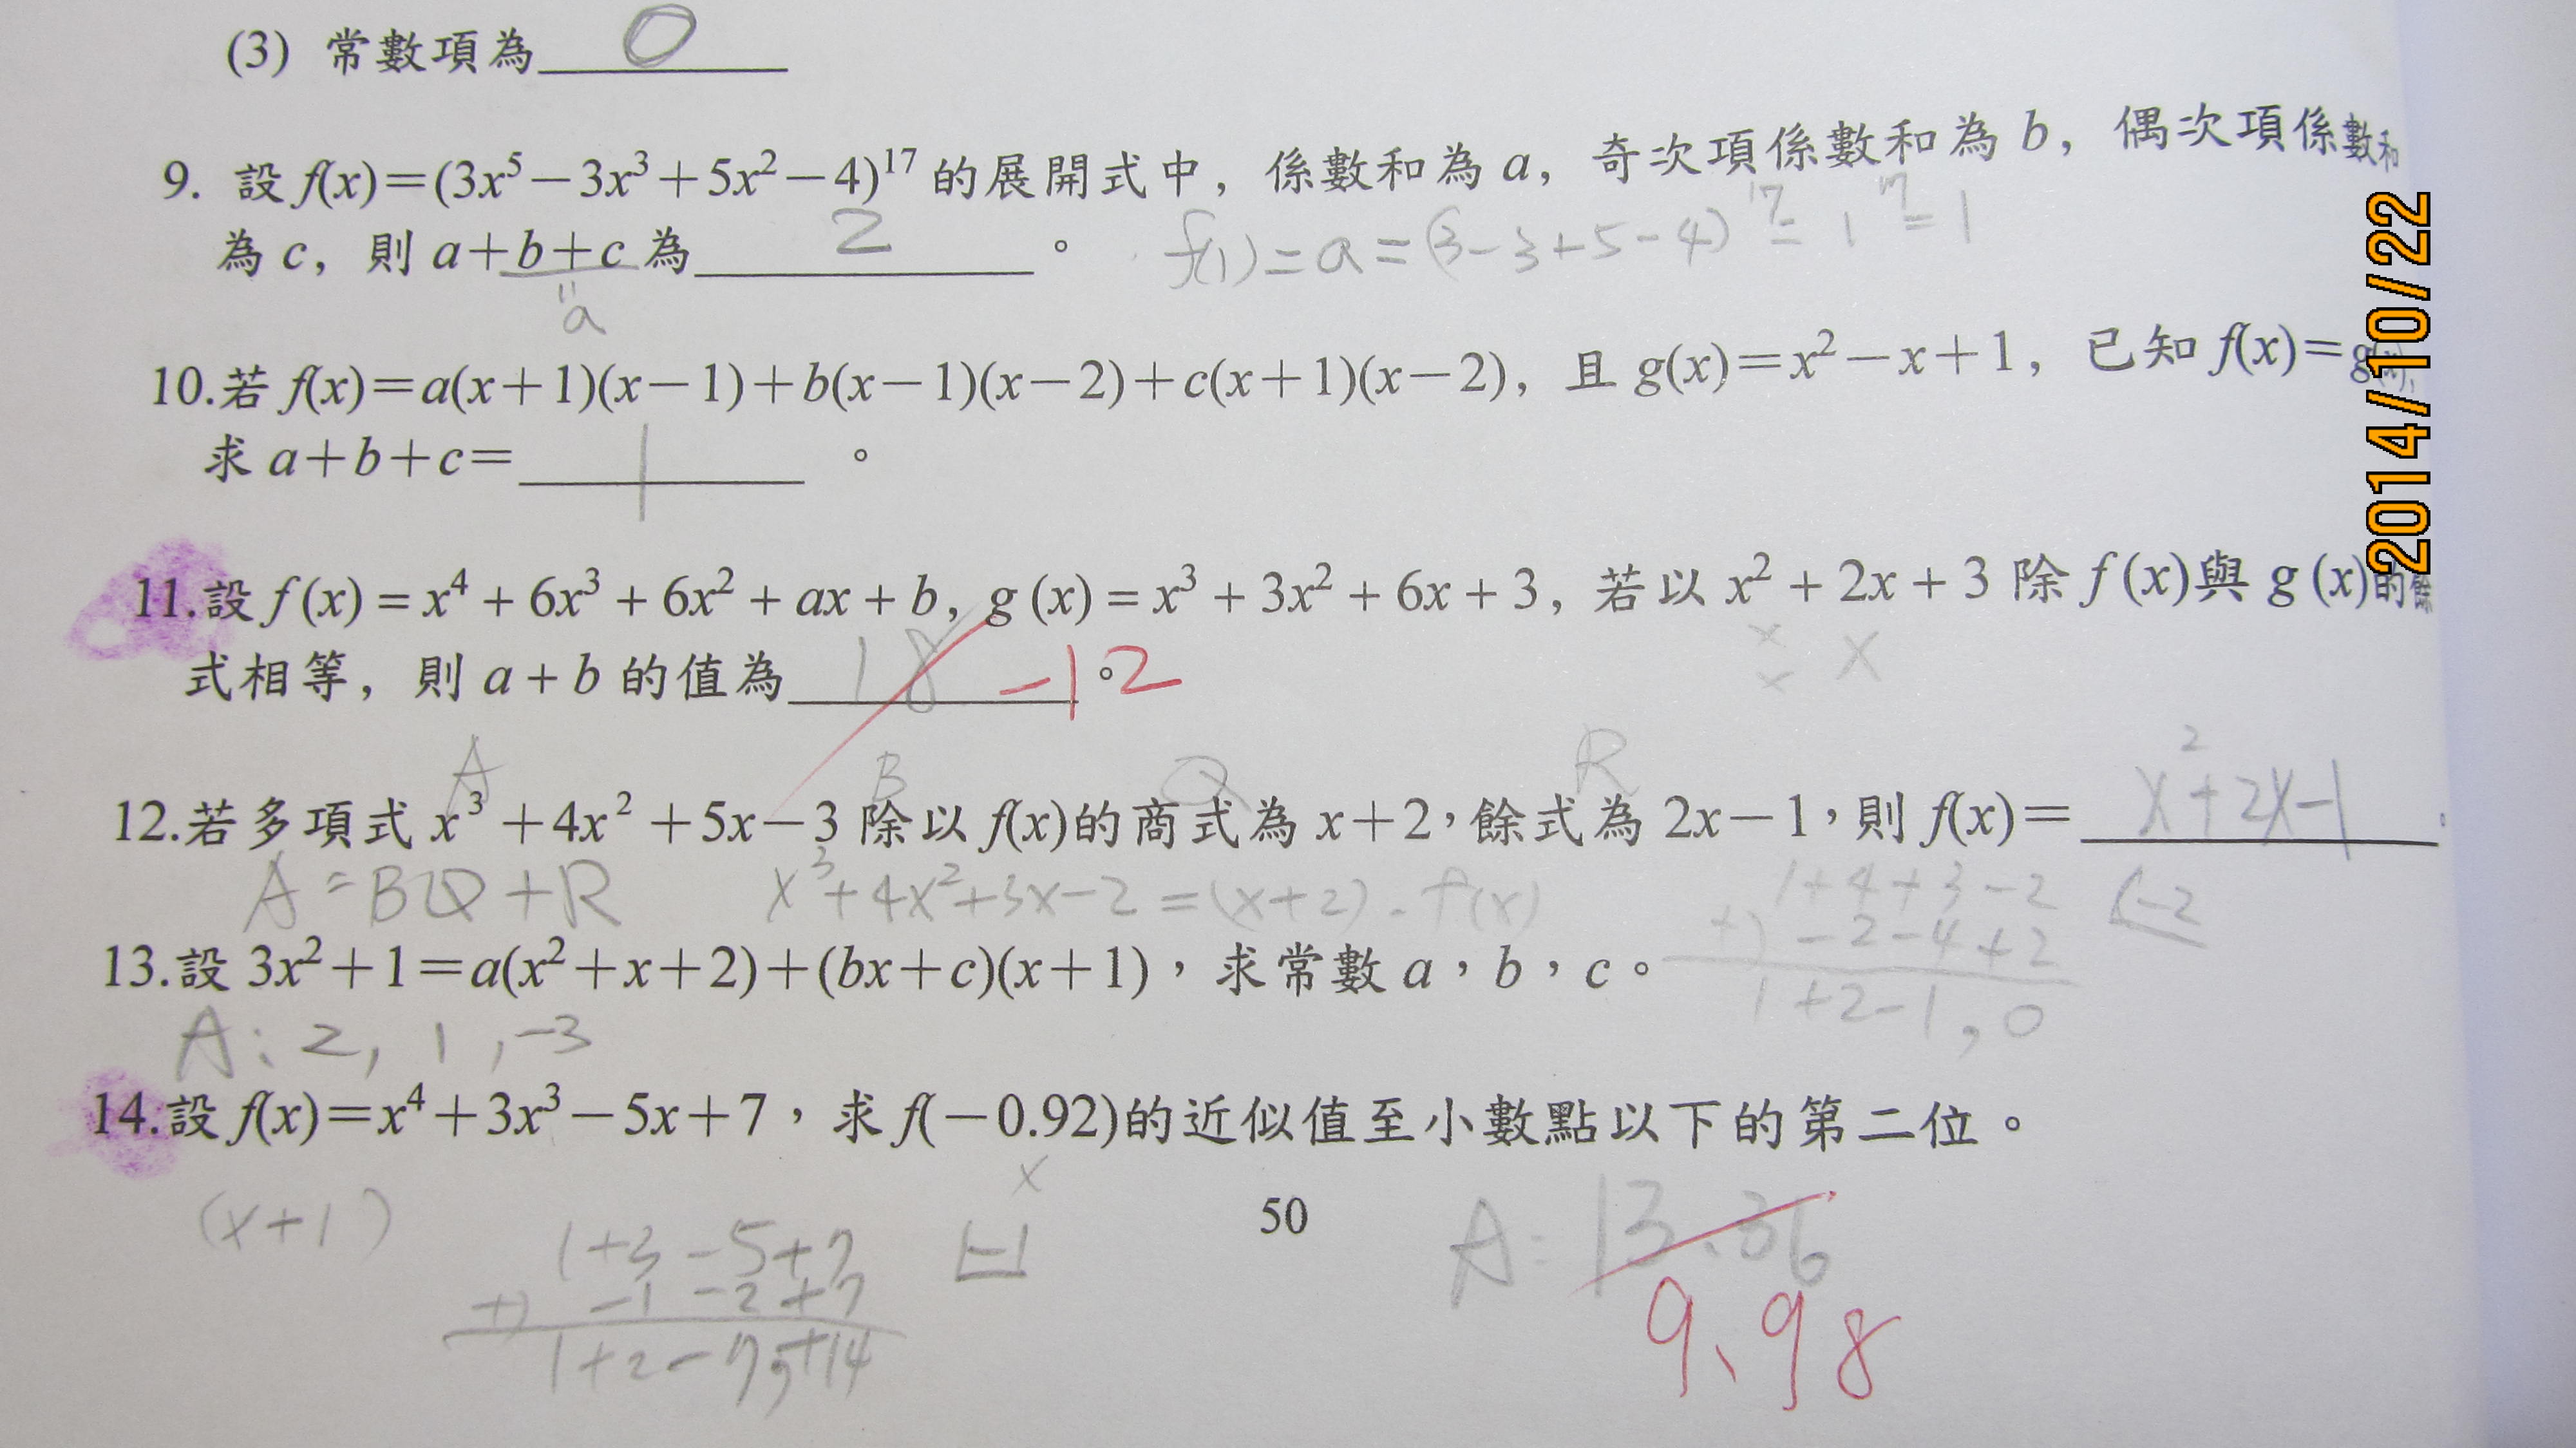 (3) 常數項為 0
9. 設 f(x)=(3x⁵-3x³+5x²-4)¹⁷ 的展開式中，係數和為 a，奇次項係數和為 b，偶次項係數和
為 c，則 a+b+c 為 2 。 f(1)=a=(3-3+5-4)¹⁷=1¹⁷=1
"
a
10.若 f(x)=a(x+1)(x-1)+b(x-1)(x-2)+c(x+1)(x-2)，且 g(x)=x²-x+1，已知 f(x)=g(x),
求 a+b+c= 1 。
11.設 f(x) = x⁴ + 6x³ + 6x² + ax + b, g(x) = x³ + 3x² + 6x + 3, 若以 x² + 2x + 3 除 f(x)與 g(x)的餘
式相等，則 a + b 的值為 18 -12 。
A B Q R
12.若多項式 x³+4x²+5x-3 除以 f(x)的商式為 x+2，餘式為 2x-1，則 f(x)= x²+2x-1 。
A=BQ+R x³+4x²+3x-2=(x+2)·f(x)
1+4+3-2 -2
+) -2-4+2
1+2-1,0
13.設 3x²+1=a(x²+x+2)+(bx+c)(x+1)，求常數 a，b，c。
A: 2, 1, -3
14.設 f(x)=x⁴+3x³-5x+7，求 f(-0.92)的近似值至小數點以下的第二位。
x
(x+1)
1+3-5+7 -1
+) -1-2+7
1+2-7,+14
50
A: 13.36
9.98
2014/10/22